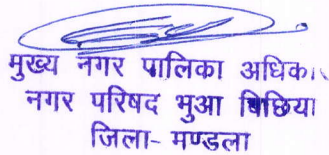 मुख्य नगर पालिका अधिका
नगर परिषद भुआ बिछिया
जिला- मण्डला